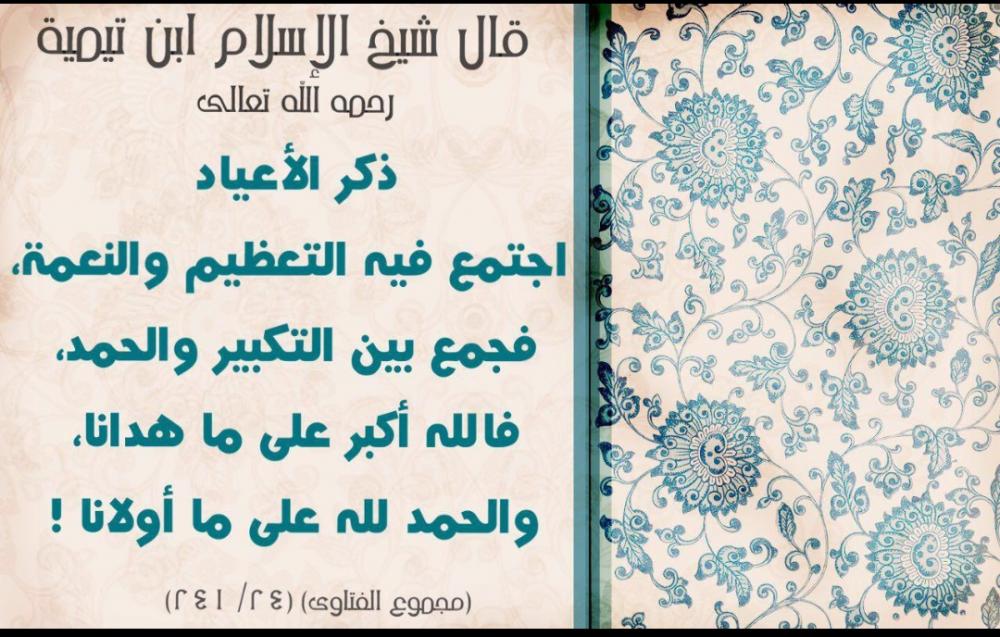 قال شيخ الإسلام ابن تيمية
رحمه الله تعالى
ذكر الأعياد
اجتمع فيه التعظيم والنعمة،
فجمع بين التكبير والحمد،
فالله أكبر على ما هدانا،
والحمد لله على ما أولانا !
(مجموع الفتاوى) (٢٤/ ٢٤١)